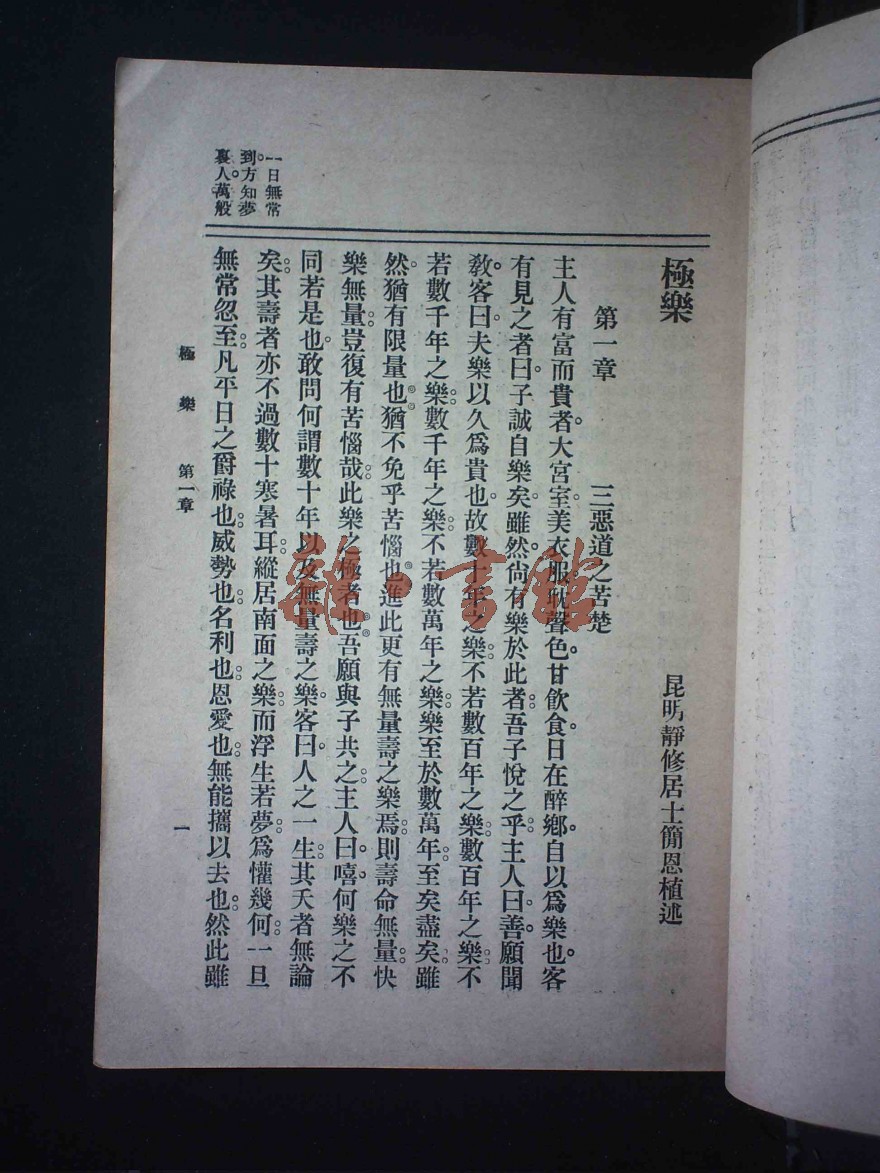 極樂
昆明靜修居士簡恩植述
第一章　三惡道之苦楚
主人有富而貴者。大宮室美衣服耽聲色。甘飲食。日在醉鄉。自以爲樂也。客
有見之者曰。子誠自樂矣。雖然。尙有樂於此者。吾子悅之乎。主人曰。善。願聞
敎。客曰。夫樂以久爲貴也。故數十年之樂。不若數百年之樂。數百年之樂。不
若數千年之樂。數千年之樂。不若數萬年之樂。樂至於數萬年。至矣盡矣。雖
然。猶有限量也。猶不免乎苦惱也。進此更有無量壽之樂焉。則壽命無量。快
樂無量。豈復有苦惱哉。此樂之極者也。吾願與子共之。主人曰。嘻。何樂之不
同若是也。敢問何謂數十年以及無量壽之樂。客曰。人之一生。其夭者無論
矣。其壽者亦不過數十寒暑耳。縱居南面之樂。而浮生若夢。爲懽幾何。一旦
無常忽至。凡平日之爵祿也。威勢也。名利也。恩愛也。無能攜以去也。然此雖
一日無常
到。方知夢
裏人。萬般
極樂　第一章
一
雜·書館